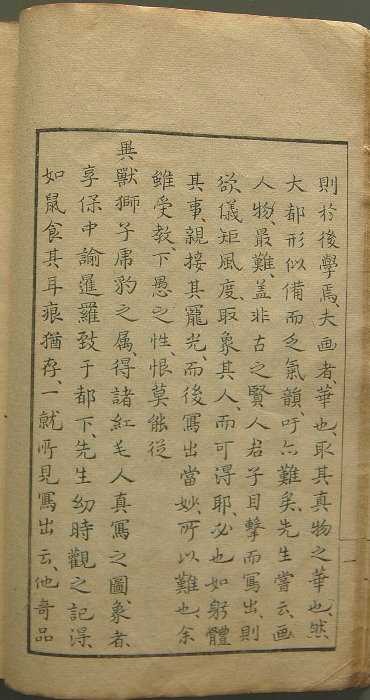 則於後學焉、夫画者華也、取其真物之華也、然
大都形似備而乏氣韻、吁亦難矣、先生嘗云、画
人物、最難、盖非古之賢人君子目擊而寫出、則
欲儀矩風度、取象其人、而可得耶、必也如躬體
其事、親接其寵光、而後寫出當妙、所以難也、余
雖受教、下愚之性、恨莫能從
異獸獅子虎豹之属、得諸紅毛人真寫之圖、象者
享保中諭暹羅致于都下、先生幼時觀之記得、
如鼠食其耳痕猶存、一就所見寫出云、他奇品